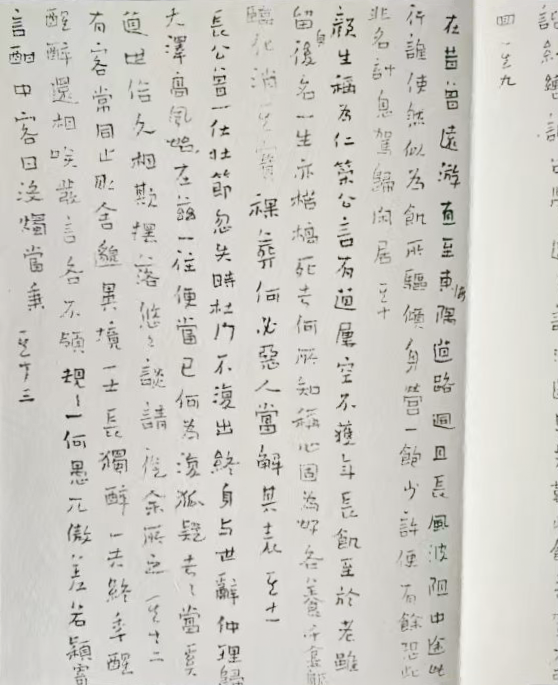 四 其九
在昔曾遠游直至東海隅道路迴且長風波阻中途此
行誰使然似為飢所驅傾身營一飽少許便有餘恐此
非名計息駕歸閑居 其十
顏生稱為仁榮公言有道屢空不獲年長飢至於老雖
留身後名一生亦枯槁死去何所知稱心固為好客養千金軀
臨化消其寶 裸葬何必惡人當解其表 其十一
長公曾一仕壯節忽失時杜門不復出終身与世辭仲理歸
大澤高風始在茲一往便當已何為復狐疑去々當奚
道世俗久相欺擺落悠々談請從余所之 其十二
有客常同止取舍邈異境一士長獨醉一夫終年醒
醒醉還相咲發言各不領規々一何愚兀傲差若穎寄
言酣中客日沒燭當秉 其十三